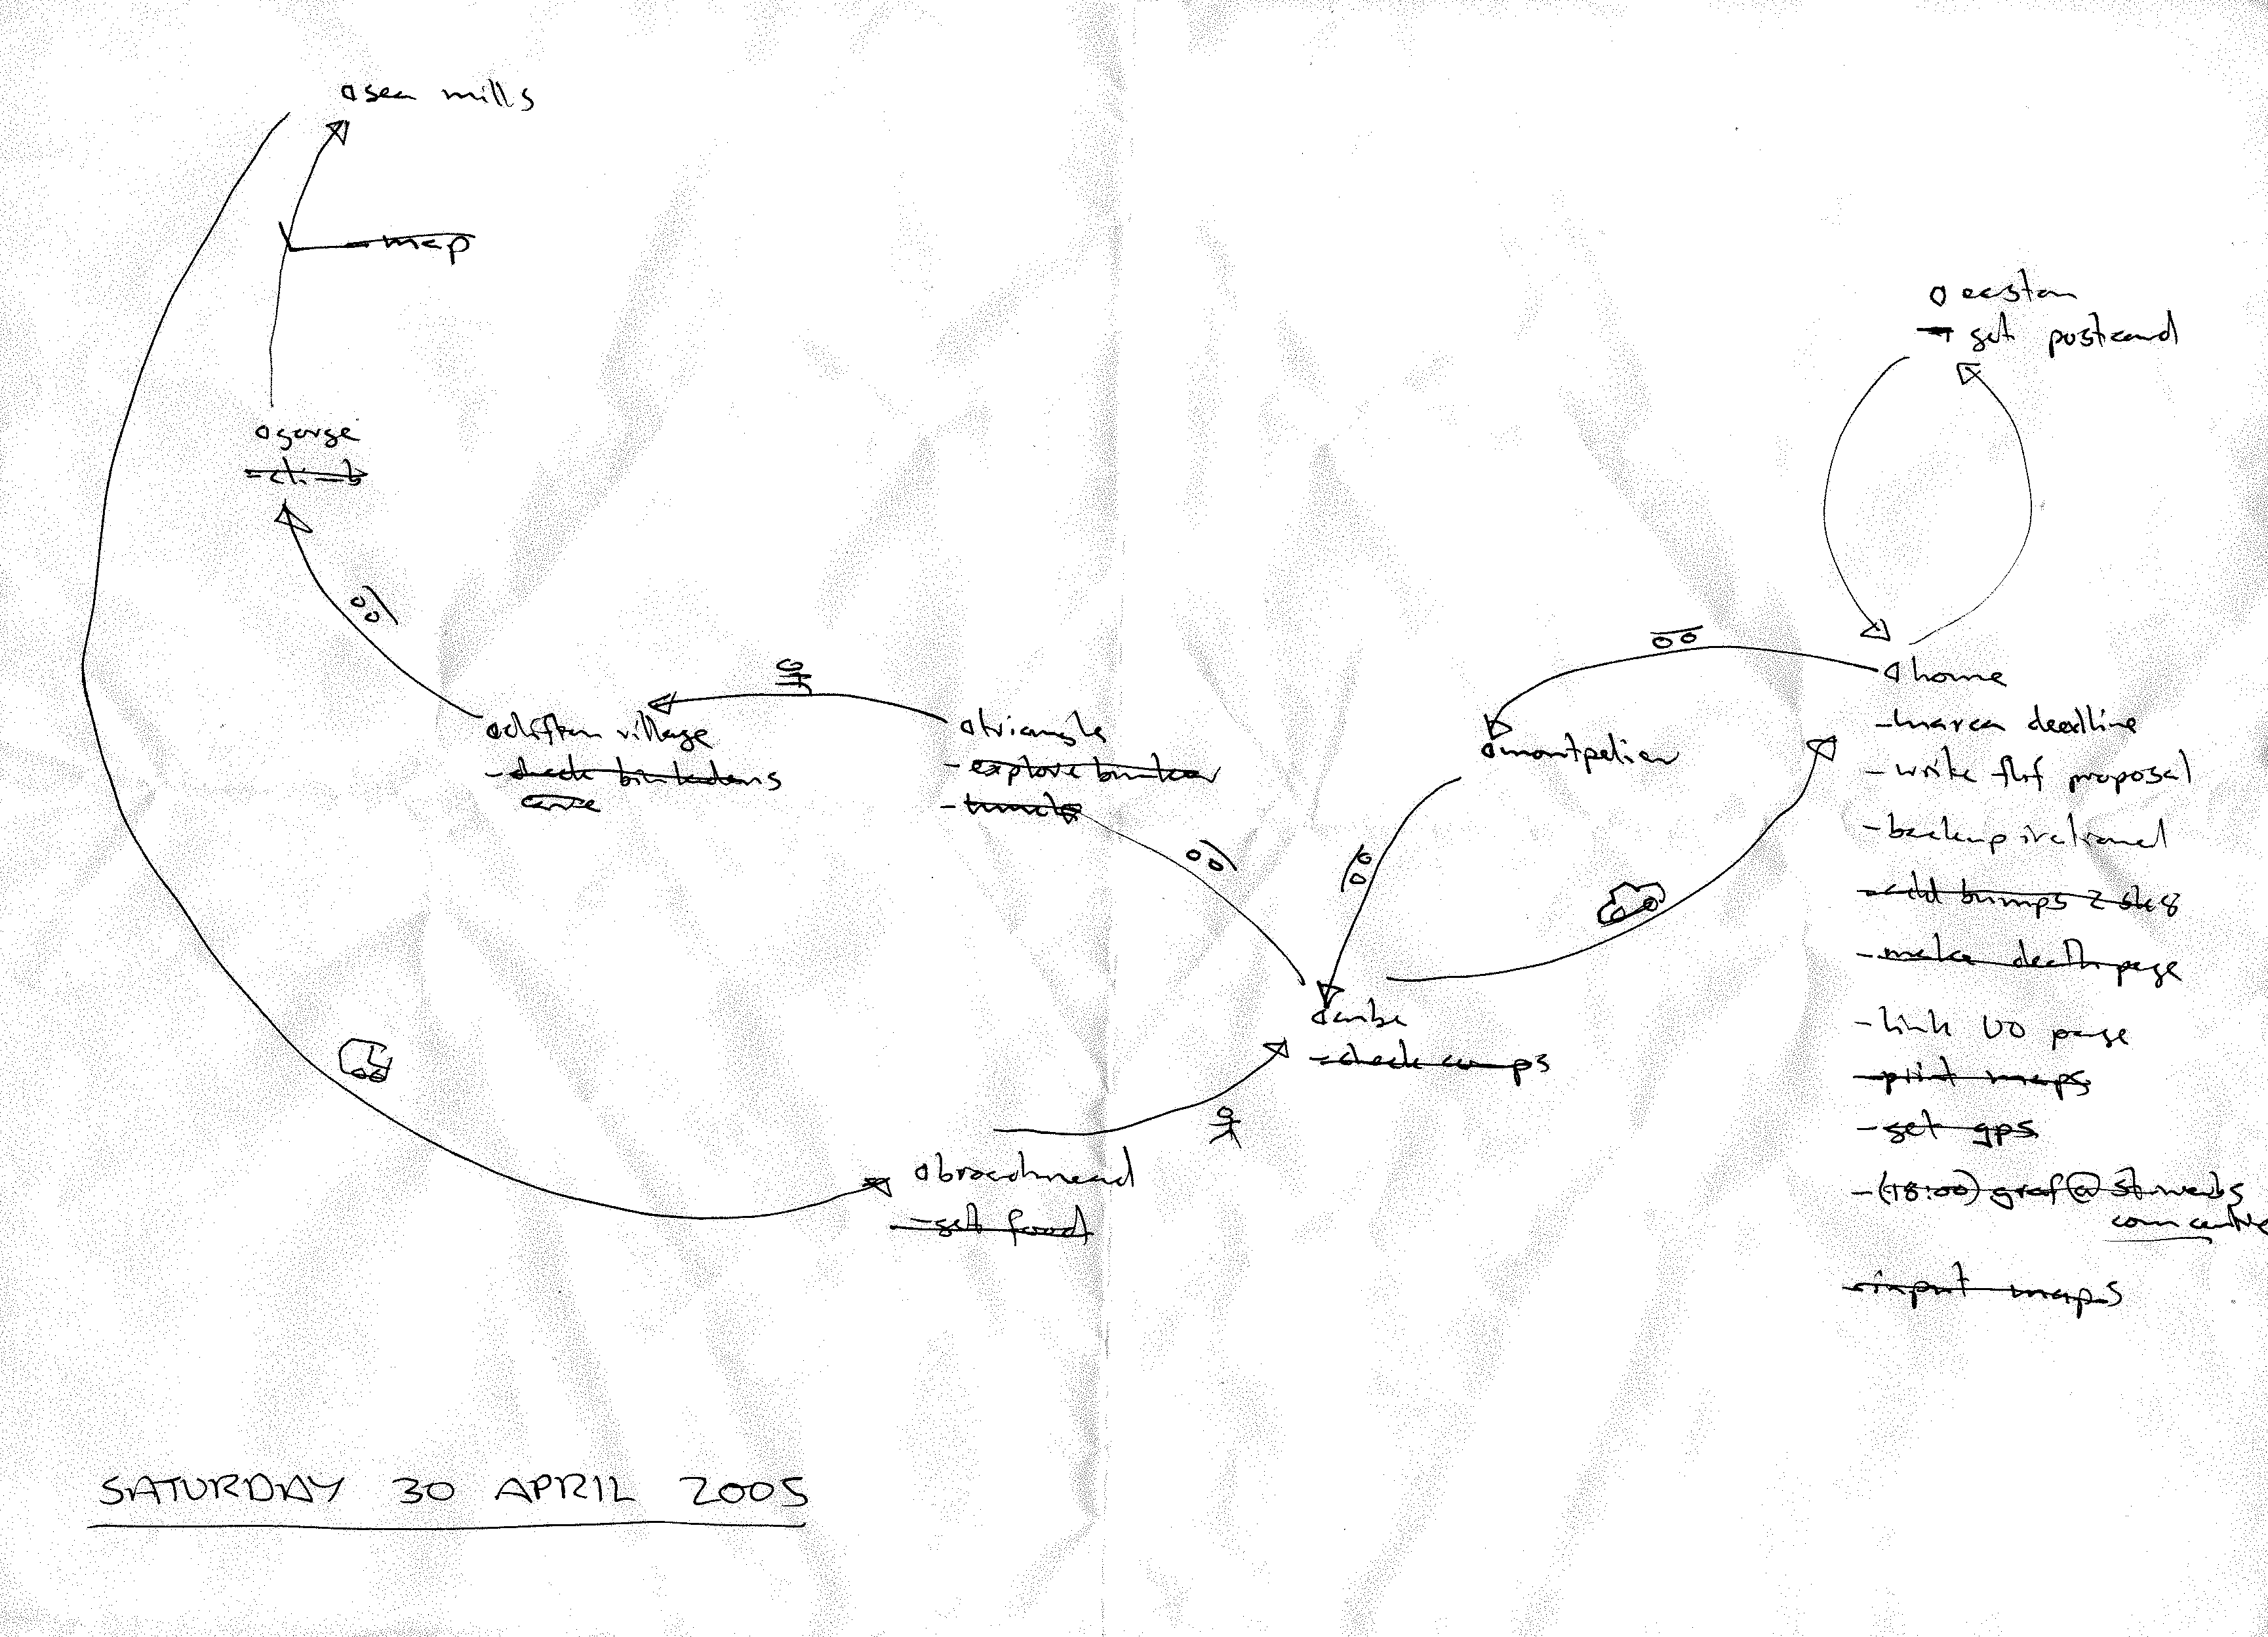 sea mills
- map
easton
- get postcard
gorge
- climb
home
- marca deadline
- write flrf proposal
- backup irational
- add bumps 2 sk8
- make death page
- link UO page
- print maps
- get gps
- (18:00) graf @ st werbs
com centre
- input maps
clifton village
- check
cave
triangle
- explore bunker
- tunnels
montpelier
cube
- check comps
broadmead
- get food
SATURDAY 30 APRIL 2005